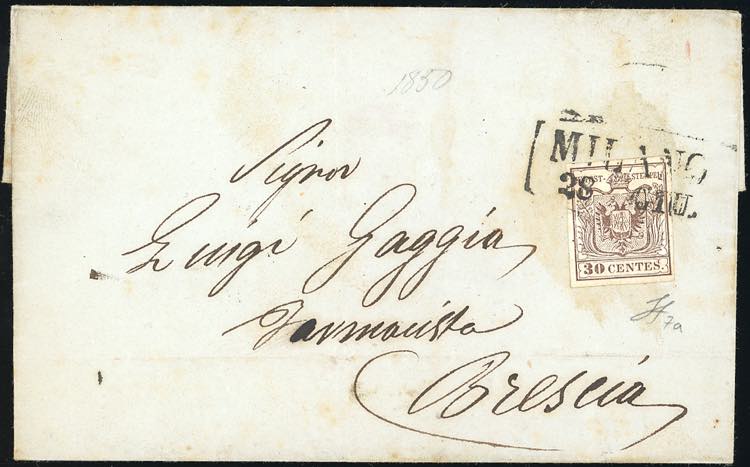 1850
MILANO
28 GIU.
KKPOST-STEMPEL
30 CENTES.
Signor
Luigi Gaggia
Farmacista
Brescia
7a